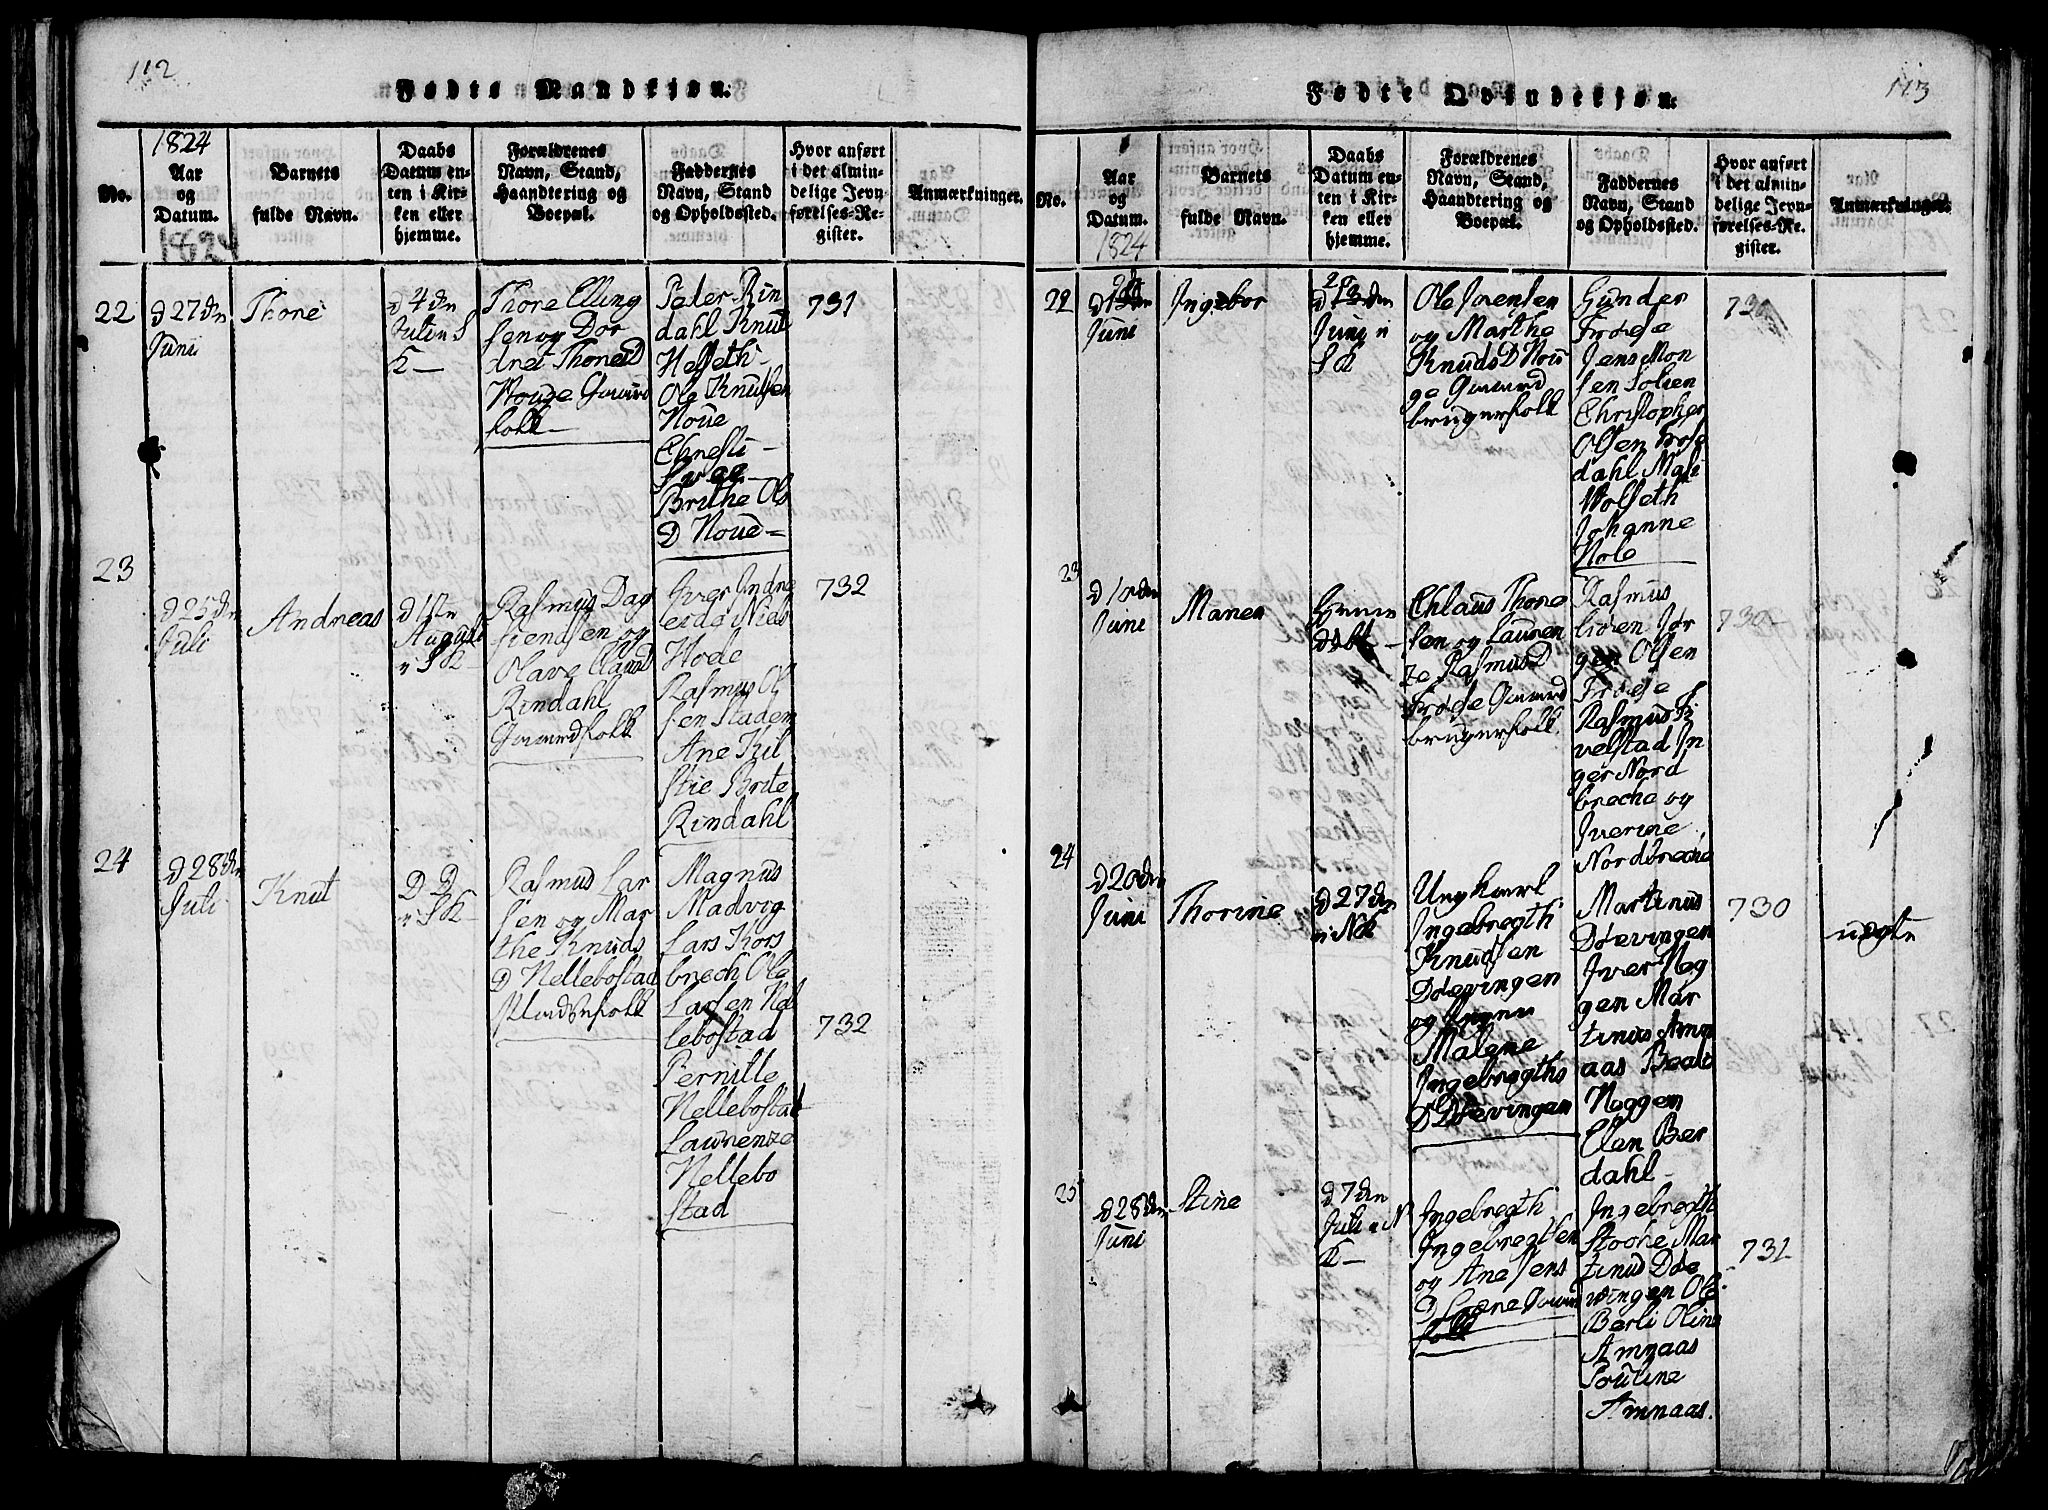 112
Fødte Mandkjøn.
1824
No.
Aar
og
Datum.
1824
Barnets
fulde Navn.
Daabs
Datum en-
ten i Kir-
ken eller
hjemme.
Forældrenes
Navn, Stand,
Haandtering og
Boepæl.
Faddernes
Navn, Stand
og Opholdssted.
Hvor anført
i det almin-
delige Jevn-
førelses-Re-
gister.
Anmærkninger.
22
d 27den
Juni
Thore
d 4den
Juli i S
K
Thore Elling
sen og Dor
dret Thores D
Houge Gaard
folk
Peder Rin
dahl Knut
Helseth
Ole Knutsen
Houe
Chresti
Svee
Brithe Ols
D Houe
731
23
d 25den
Juli
Andreas
d 1ste
August
i S K
Rasmus Dag
fiendsen og
Olave
Rindahl
Gaardfolk
Iver Indre
eide Niels
Hode
Rasmus Ol
sen Stadem
Ane Kil
stie Brite
Rindahl
732
24
d 28de
Juli
Knut
D D
i S K
Rasmus Lar
sen og Mar
the Knuds
D Nellebostad
Pladsfolk
Magnus
Madvig
Lars Kors
brech Ole
Larsen Nel
lebostad
Pernille
Nellebostad
Laurenze
Nellebo
stad
732
113
Fødte Qvindekjøn.
No.
Aar
og
Datum.
1824
Barnets
fulde Navn.
Daabs
Datum en-
ten i Kir-
ken eller
hjemme.
Forældrenes
Navn, Stand,
Haandtering og
Boepæl.
Faddernes
Navn, Stand
og Opholdssted.
Hvor anført
i det almin-
delige Jevn-
førelses-Re-
gister.
Anmærkninger.
22
Juni
Ingebor
Juni i
S K
Ole Jensen
og Marthe
Knuds D Hou
ge Gaard
brugerfolk
Gunder
Frøise
Jens Mon
sen Solien
Christopher
Olsen Frose
dahl Mali
Wolseth
Johanne
Hole
730
23
d 10de
Juni
Maren
Chlaus Thore
sen og Lauren
ze Rasmus D
Frøise Gaard
brugerfolk
Rasmus
Lioren Jør
gen Olsen
Frøise
Rasmus Fi
velstad In
ger Nord
breche og
Iverine
Nordbreche
730
24
d 20de
Juni
Thorine
d 27den
i N K
Ungkarl
Ingebregth
Knudsen
Døevingen
og
Malene
Ingebregths
D Døevingen
Martinus
Døevingen
Iver Heg
gen Mar
tinus Amn
aas Beate
Heggem
Elen Ber
dahl
730
uægte
25
d 28de
Juni
Stine
d 7den
Juli i N
K
Ingebregth
Ingebregtsen
og Ane Jens
D
folk
Ingebregth
Stoche Mar
tinus Døe
vingen Ole
Berli Oline
Amnaas
Poutine
Amnaas.
731